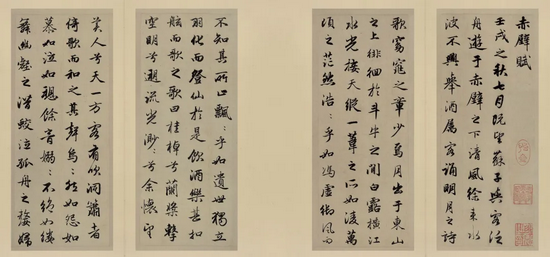 赤壁賦
壬戌之秋七月既望蘇子與客泛
舟遊于赤壁之下清風徐來水
波不興舉酒属客誦明月之詩
歌窈窕之章少焉月出于東山
之上徘徊於斗牛之間白露橫江
水光接天縱一葦之所如凌萬
頃之茫然浩〻乎如馮虛御風而
不知其所止飄〻乎如遺世獨立
羽化而登仙於是飲酒樂甚扣
舷而歌之歌曰桂棹兮蘭槳擊
空明兮遡流光渺〻兮余懷望
美人兮天一方客有吹洞簫者
倚歌而和之其聲嗚〻然如怨如
慕如泣如愬餘音嫋〻不絕如縷
舞幽壑之潛蛟泣孤舟之嫠婦